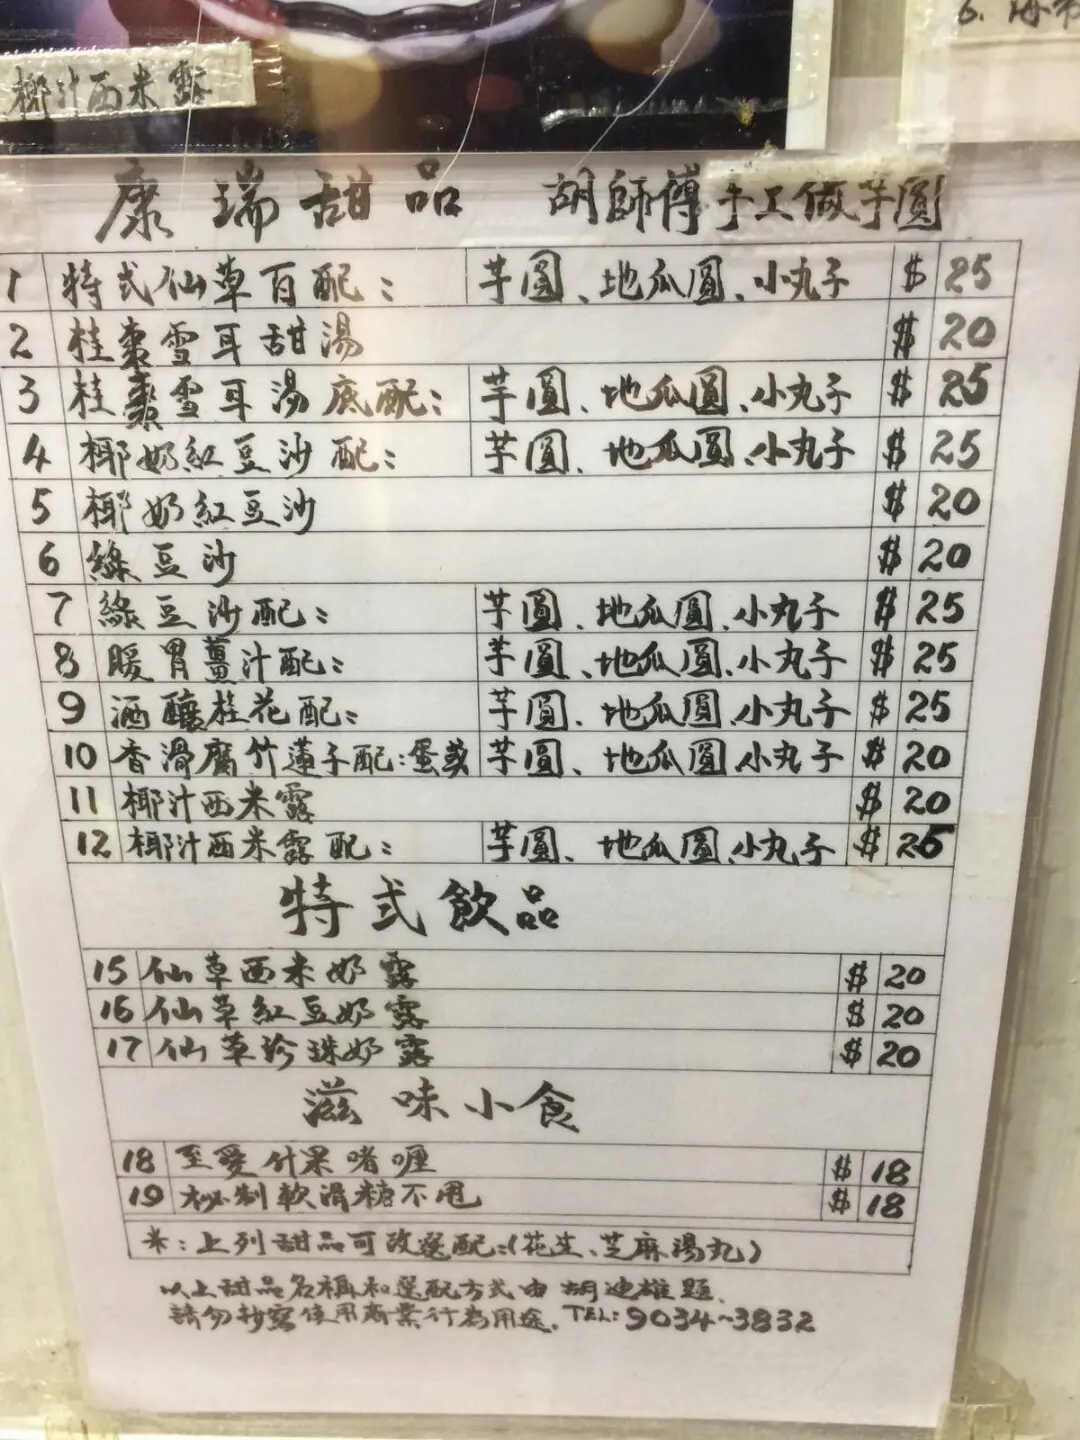 椰汁西米露
康瑞甜品 胡師傅手工做芋圓
1 特式仙草百配： 芋圓、地瓜圓、小丸子 $ 25
2 桂棗雪耳甜湯 $ 20
3 桂棗雪耳湯底配： 芋圓、地瓜圓、小丸子 $ 25
4 椰奶紅豆沙配： 芋圓、地瓜圓、小丸子 $ 25
5 椰奶紅豆沙 $ 20
6 綠豆沙 $ 20
7 綠豆沙配： 芋圓、地瓜圓、小丸子 $ 25
8 暖胃薑汁配： 芋圓、地瓜圓、小丸子 $ 25
9 酒釀桂花配： 芋圓、地瓜圓、小丸子 $ 25
10 香滑腐竹蓮子配：蛋或 芋圓、地瓜圓、小丸子 $ 20
11 椰汁西米露 $ 20
12 椰汁西米露配： 芋圓、地瓜圓、小丸子 $ 25
特式飲品
15 仙草西米奶露 $ 20
16 仙草紅豆奶露 $ 20
17 仙草珍珠奶露 $ 20
滋味小食
18 至愛什果啫喱 $ 18
19 秘制軟滑糖不甩 $ 18
*：上列甜品可改選配：(花生、芝麻湯丸)
以上甜品名稱和選配方式由胡迪雄題.
請勿抄寫使用商業行為用途. TEL: 9034-3832